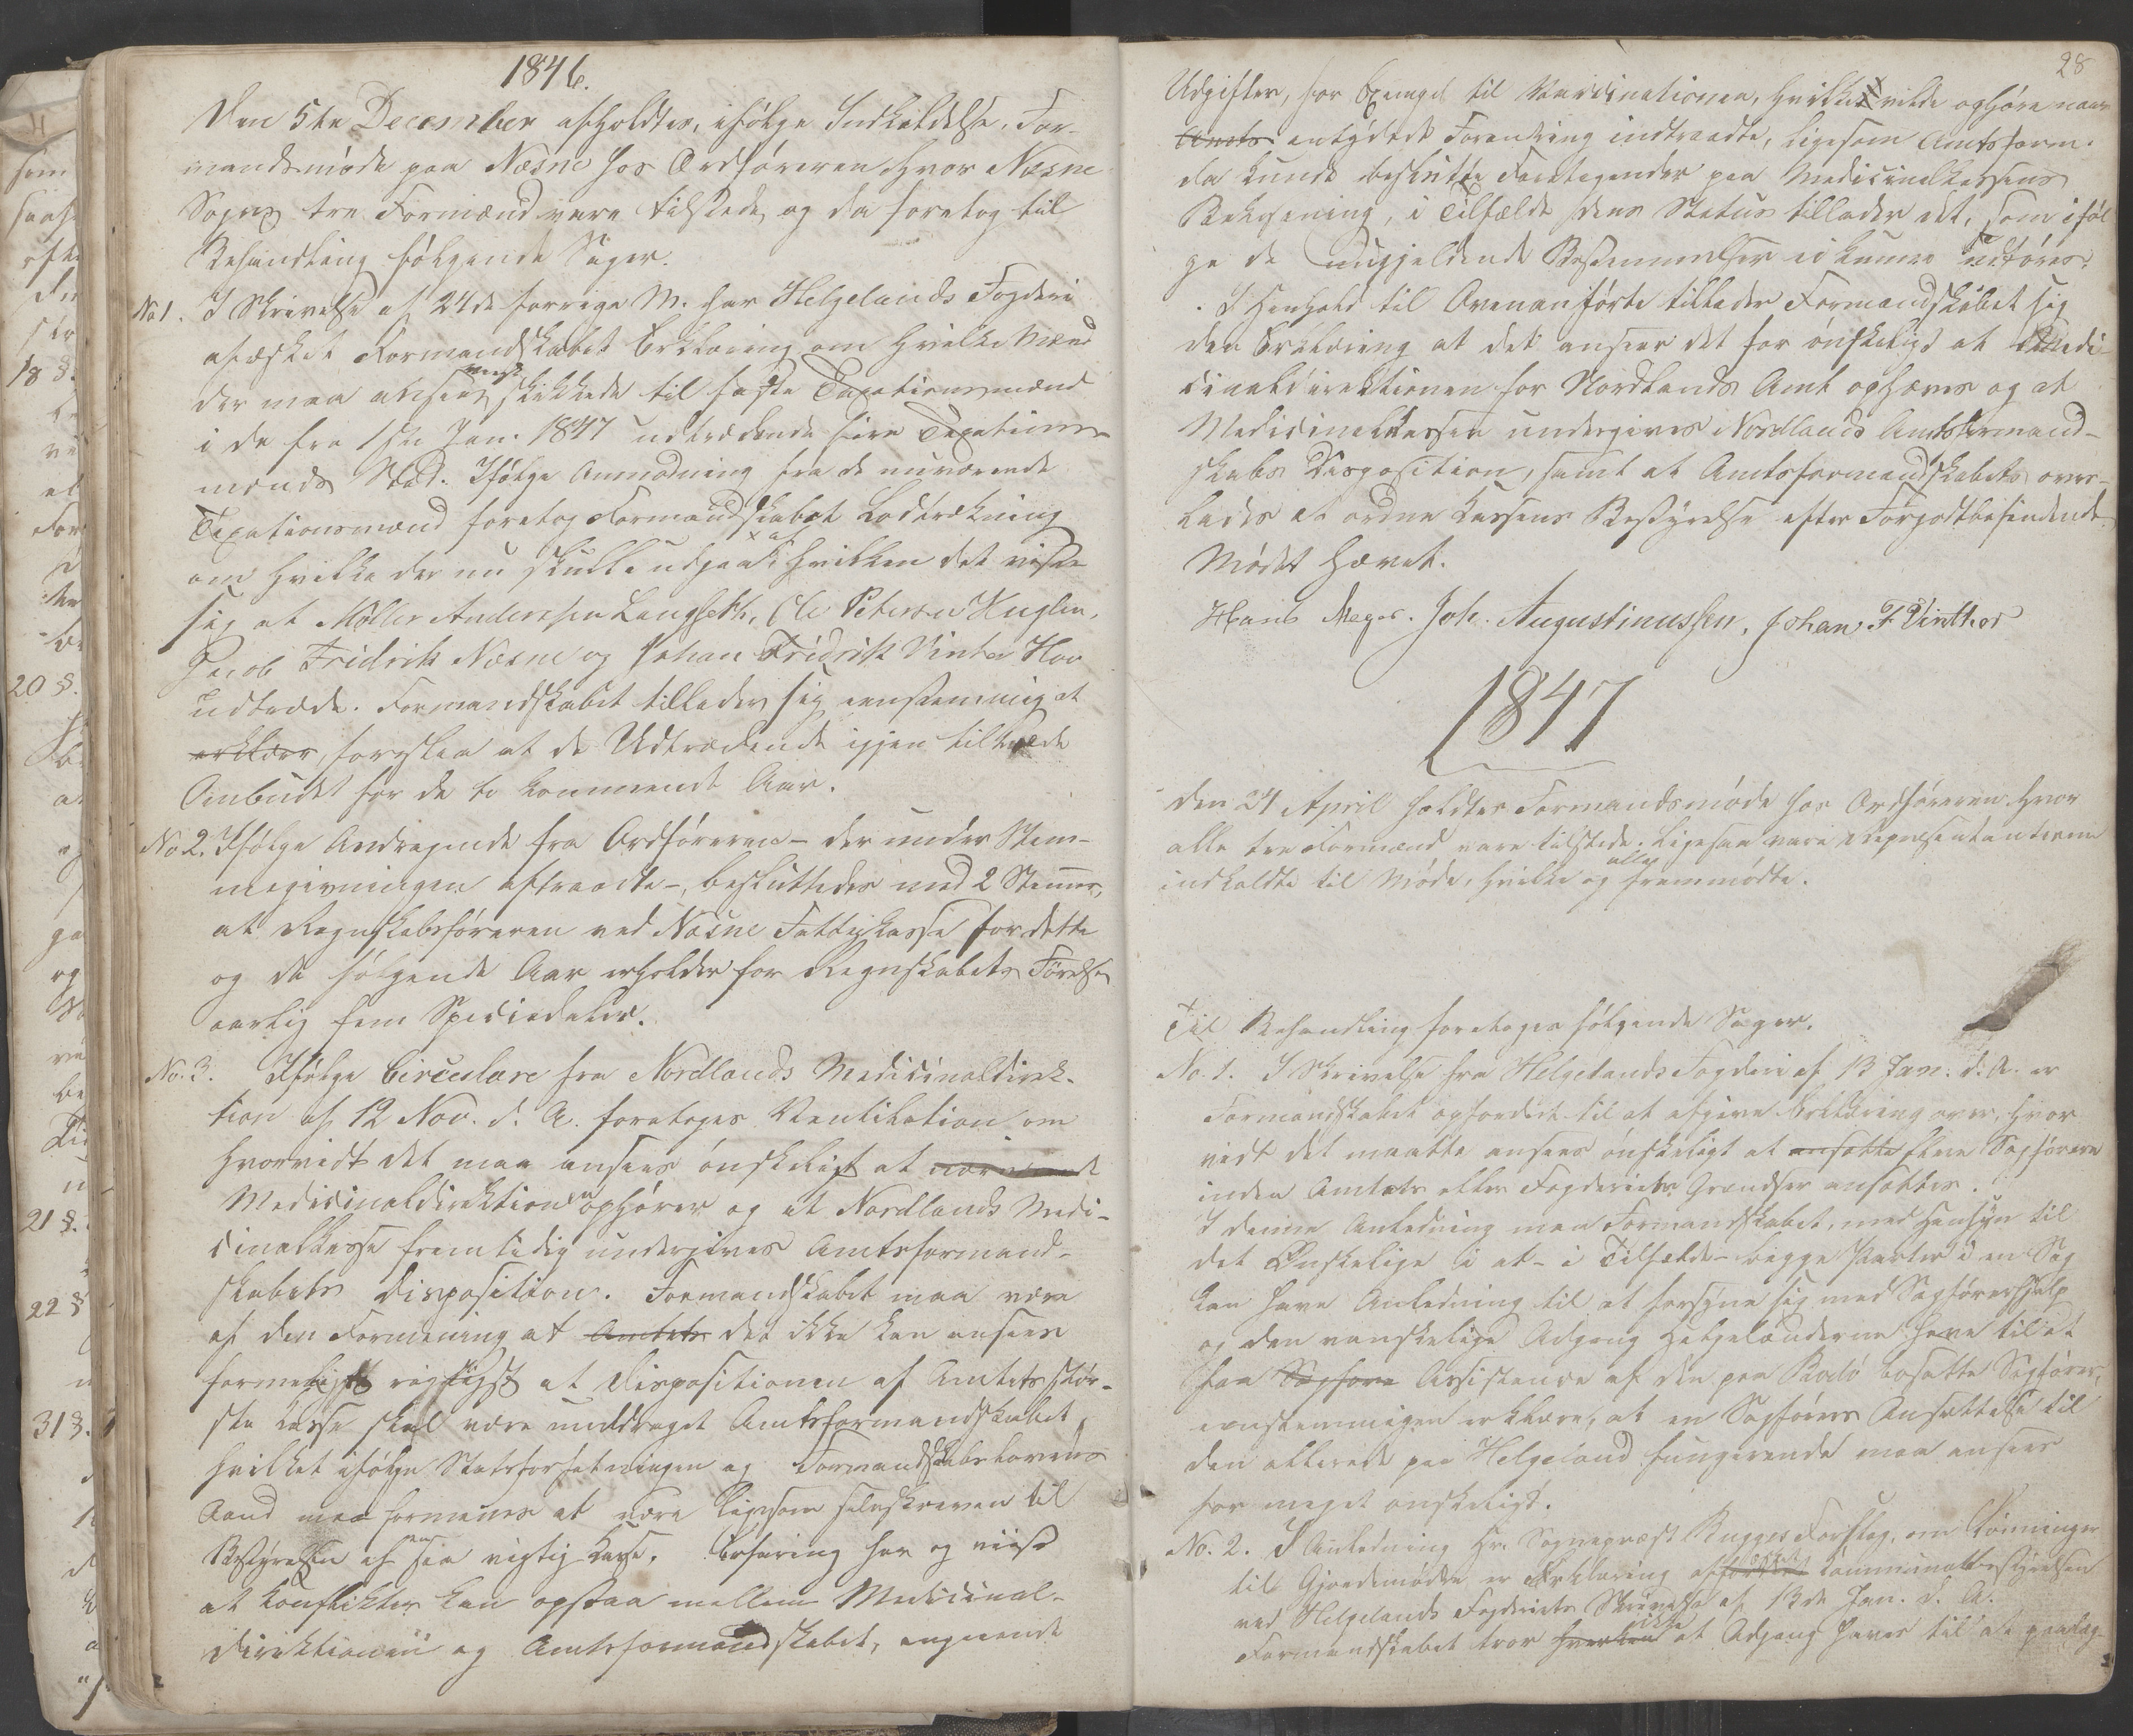 1846.
Den 5te December afholdtes, ifølge Indkaldelse, For-
mandsmøde paa Næsne hos Ordføreren hvor Næsne
Sogns tre Formænd vare tilstede, og da foretog til
Behandling følgende Sager.
No 1. I Skrivelse af 24de forrige M. har Helgelands Fogderi
afæsket Formandskabet Erklæring om hvilke Mænd
der maa ansees meest skikkede til faste Taxationsmænd
i de fra 1ste Jan. 1847 udtrædende fire Taxations-
mænds Sted. Ifølge Anmodning fra de nuværende
Taxationsmænd foretog Formandskabet Lodtrækning
om hvilke der nu skulle udgaa af hvilken det viste
sig at Møller Andersen Langseth, Ole Petersen Huglen,
Jacob Fridrik Næsne og Johan Fridrik Vinter Hov
udtræde. Formandskabet tillader sig eenstemmig at
erklære, foreslaa at de Udtrædende igjen tiltræde
Ombudet for de to kommende Aar.
No 2. Ifølge Andragende fra Ordføreren – der under Stem-
megivningen aftraadte –, besluttedes med 2 Stemmer,
at Regnskabsføreren ved Næsne Fattigkasse for dette
og de følgende Aar erholder for Regnskabets Førelse
aarlig fem Speciedaler.
No. 3. Ifølge Circulære fra Nordlands Medicinaldirek-
tion af 12 Nov. d. A. foretoges Ventilation om
hvorvidt det maa ansees ønskeligt at nærværende
Medicinaldirektionen ophører og at Nordlands Medi-
cinalkasse fremtidig undergives Amtsformand-
skabets Disposition. Formandskabet maa være
af den Formening at Amtets det ikke kan ansees
formeligst rigtigst at Dispositionen af Amtets stør-
ste Kasse skal være unddraget Amtsformandskabet,
hvilket ifølge Statsforfatningen og Formandskabslovens
Aand maa formenes at være ligesom selvskreven til
Bestyrelsen af en saa vigtig Kasse. Erfaring har og viist
at Conflikter kan opstaa mellem Medicinal-
direktionen og Amtsformandskabet, angaaende
28
Udgifter, for Exempel til Vaccinationen, hvilke vilde ophøre naar
Amts antydede Forandring indtraadte, ligesom Amtsform.
da kunde beslutte Foretagender paa Medicinalkassens
Bekostning, i Tilfælde dens Status tillader det, som iføl
ge de nugjeldende Bestemmelser ei kunne udføres.
I Henhold til Ovenanførte tillader Formandskabet sig
den Erklæring at det anseer det for ønskeligt at Medi-
cinaldirektionen for Nordlands Amt ophæves og at
Medicinalkassen undergives Nordlands Amtsformand-
skabs Disposition, samt at Amtsformandskabets over-
lades at ordne Kassens Bestyrelse efter Forgodtbefindende.
Mødet hævet.
Hans Meyer. Joh. Augustinussen. Johan F Vinther
1847
Den 24 April holdtes Formandsmøde hos Ordføreren hvor
alle tre Formænd vare tilstede. Ligesaa vare Repræsentanterne
indkaldte til Møde, hvilke og alle fremmødte.
Til Behandling foretoges følgende Sager.
No. 1. I Skrivelse fra Helgelands Fogderi af 13 Jan. d. A. er
Formandskabet opfordret til at afgive Erklæring over, hvor
vidt det maatte ansees ønskeligt at ansætte flere Sagførere
inden Amtets eller Fogderiets Grændser ansættes.
I denne Anledning maa Formandskabet, med Hensyn til
det Ønskelige i at – i Tilfælde – begge Parter i en Sag
kan have Anledning til at forsyne sig med Sagførerhjælp
og den vanskelige Adgang Helgelænderne have til at
faa Sagføre Assistance af den paa Bodø bosatte Sagfører,
eenstemmigen erklære, at en Sagførers Ansættelse til
den allerede paa Helgeland fungerende maa ansees
for meget ønskeligt.
No. 2. I Anledning Hr. Sognepræst Bugges Forslag, om Lønninger
til Gjordemødre er Erklæring affordret Communalbestyrelsen
ved Helgelands Fogderiets Skrivelse af 13de Jan. d. A.
Formandskabet tror hverken ikke at Adgang haves til at paalæg-